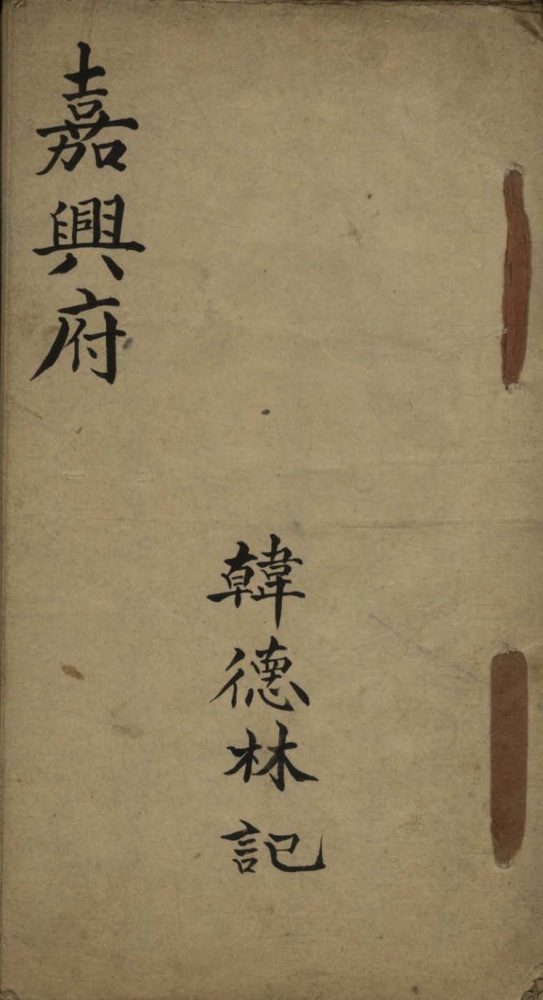 嘉興府
韓德林記